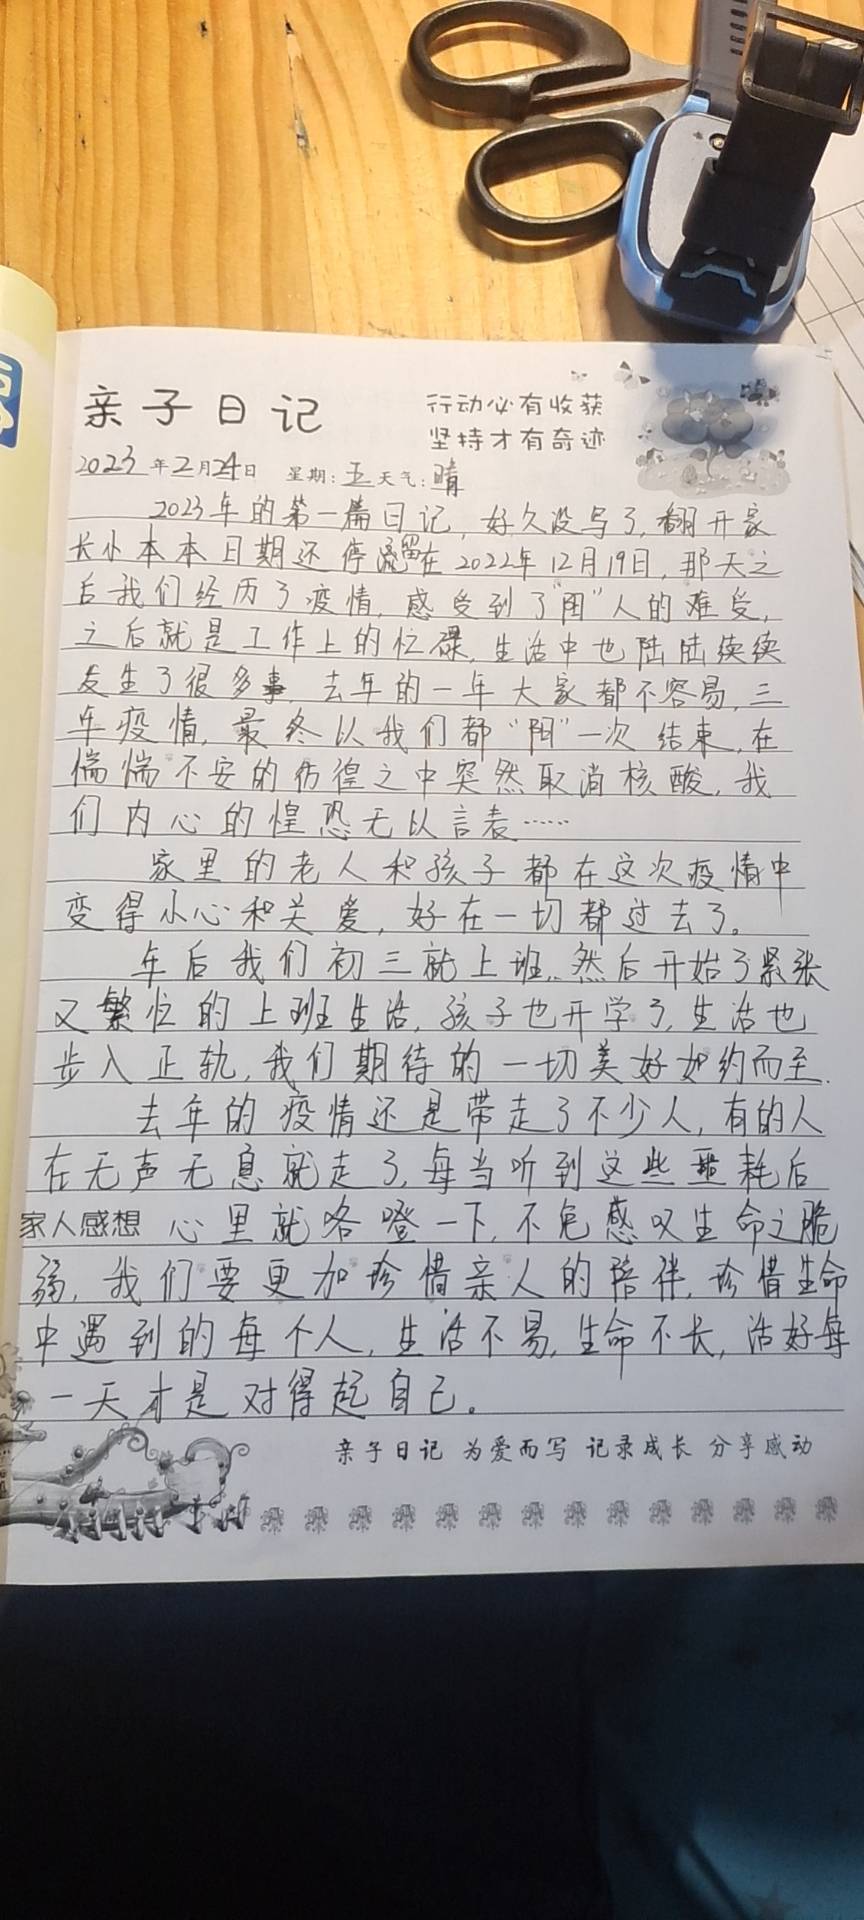 亲子日记
行动必有收获
坚持才有奇迹
2023年2月24日 星期:五 天气:晴
2023年的第一篇日记,好久没写了,翻开家
长小本本日期还停留在2022年12月19日,那天之
后我们经历了疫情,感受到了"阳"人的难受,
之后就是工作上的忙碌,生活中也陆陆续续
发生了很多事,去年的一年大家都不容易,三
年疫情,最终以我们都"阳"一次结束,在
惴惴不安的彷徨之中突然取消核酸,我
们内心的惶恐无以言表……
家里的老人和孩子都在这次疫情中
变得小心和关爱,好在一切都过去了。
年后我们初三就上班,然后开始了紧张
又繁忙的上班生活,孩子也开学了,生活也
步入正轨,我们期待的一切美好如约而至.
去年的疫情还是带走了不少人,有的人
在无声无息就走了,每当听到这些噩耗后
家人感想 心里就咯噔一下,不免感叹生命之脆
弱,我们要更加珍惜亲人的陪伴,珍惜生命
中遇到的每个人,生活不易,生命不长,活好每
一天才是对得起自己。
亲子日记 为爱而写 记录成长 分享感动